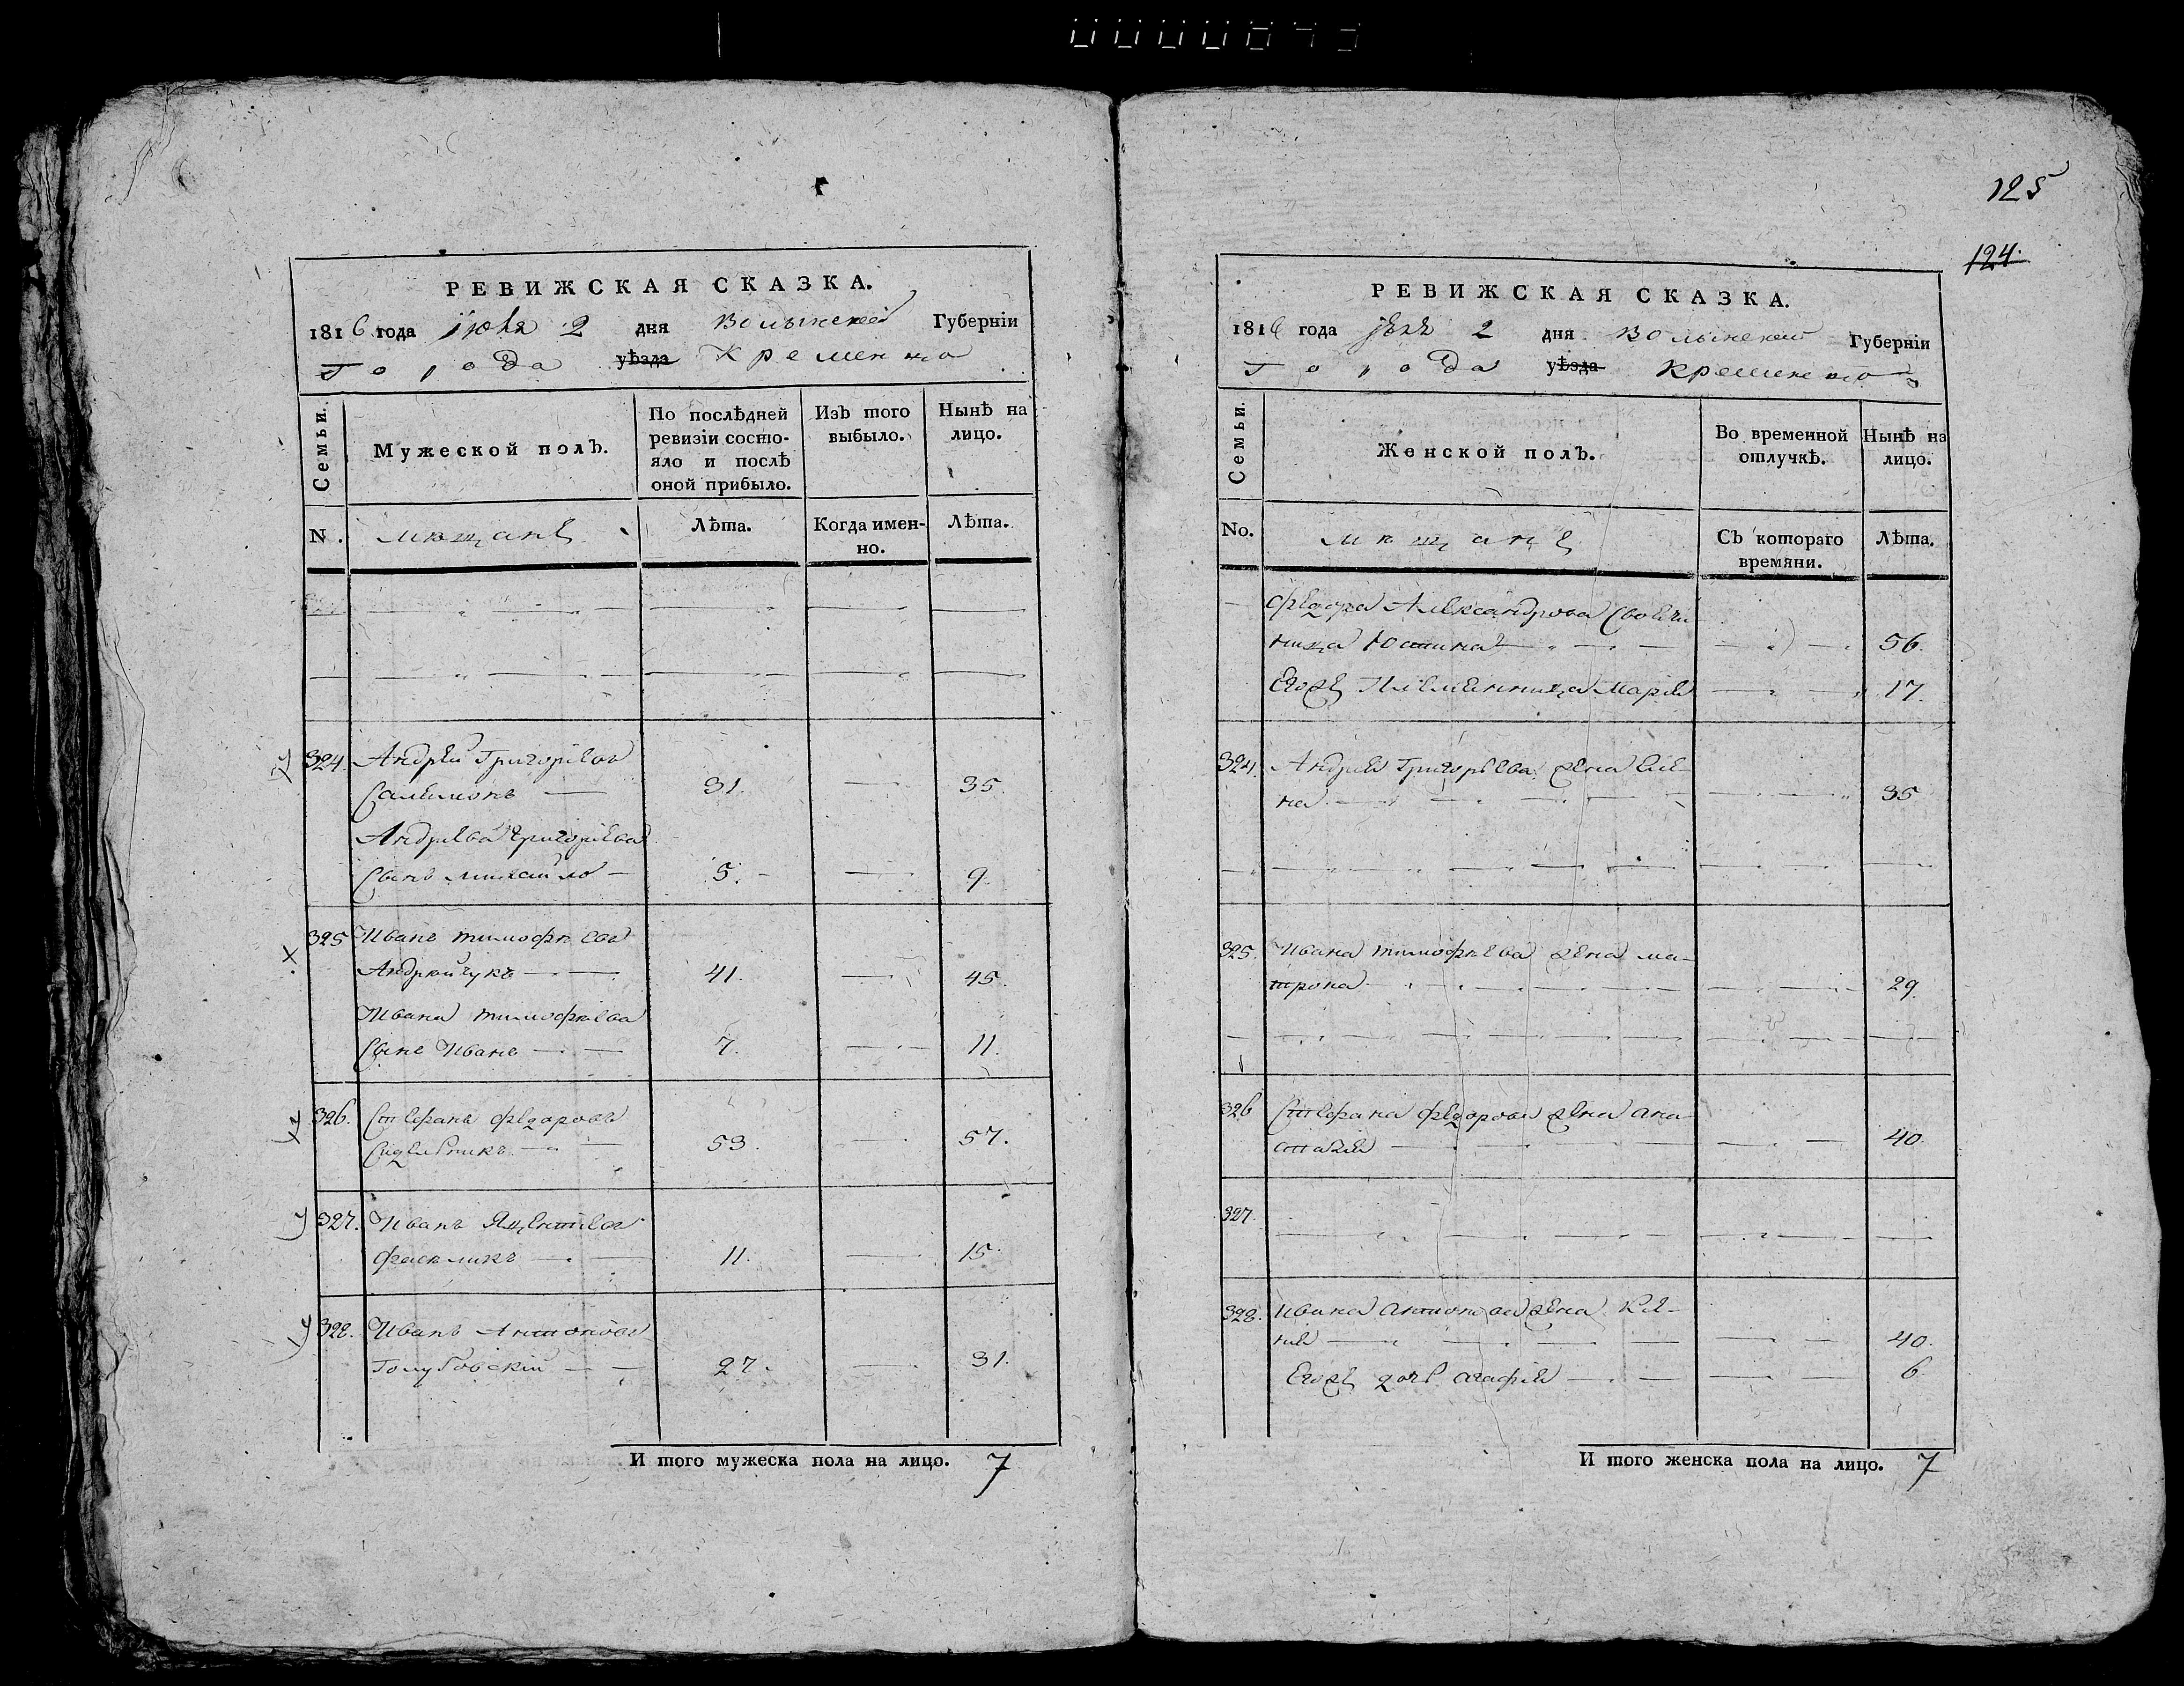 125
124.
РЕВИЖСКАЯ СКАЗКА.
1816 года июня 2 дня Волынской Губерніи
Города уѣзда Кременца
Семьи.
Мужеской полъ.
По послѣдней ревизіи состо-
яло и послѣ оной прибыло.
Изъ того выбыло.
Нынѣ на лицо.
N. мѣщане Лѣта. Когда имен-
но. Лѣта.
324. Андрей Григорьевъ
31. 35.
Андрѣева Григорьева
Сынъ Михайло 5. 9.
325 Иванъ Тимофѣевъ
Андрейчукъ 41. 45.
Ивана Тимофѣева
Сынъ Иванъ 7. 11.
326. Стефанъ Федоровъ
53. 57.
327. Иванъ
11. 15.
328. Иванъ Антоновъ
Голубовскій 27. 31.
И того мужеска пола на лицо. 7
РЕВИЖСКАЯ СКАЗКА.
1816 года 2 дня Волынской Губерніи
Города уѣзда Кременца
Семьи.
Женской полъ.
Во временной отлучкѣ.
Нынѣ на лицо.
No. мѣщане Съ котораго времяни. Лѣта.
Федора Александрова
Юстина 56.
Егоже Племенница Марія 17.
324. Андрея Григорьева жена Еле-
на 35
325. Ивана Тимофѣева жена Ма-
трона 29.
326 Стефана Федорова жена Ана-
стасія 40.
327.
328. Ивана Антонова жена
40.
Егоже дочь Агафія 6
И того женска пола на лицо. 7